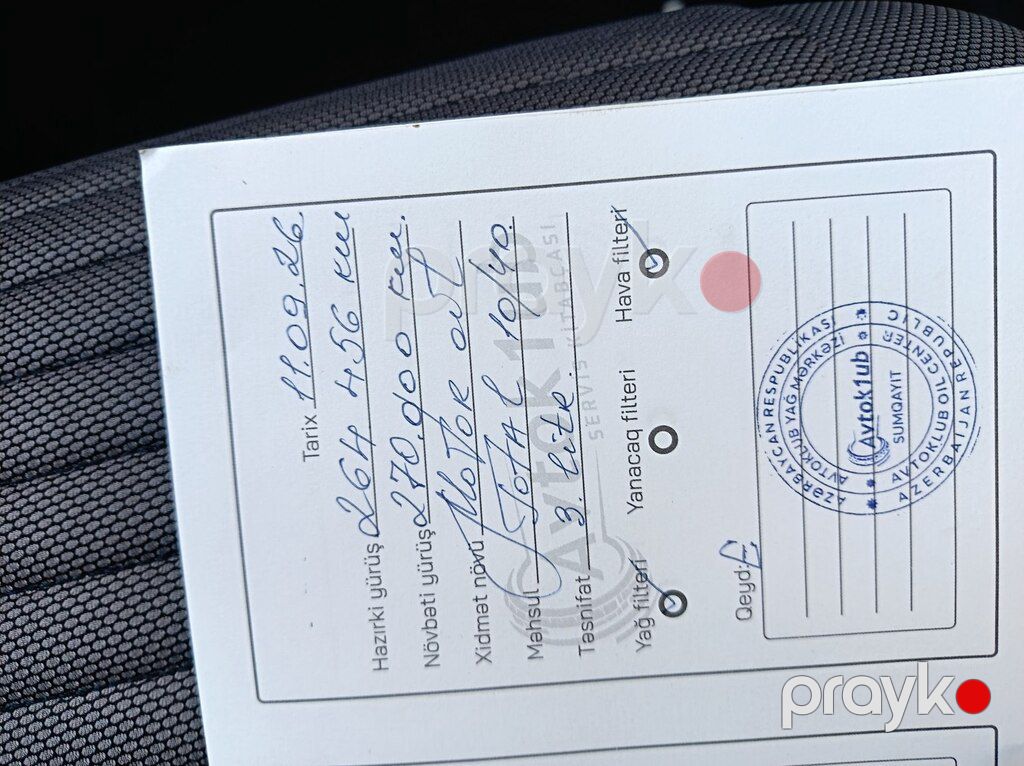 Tarix 11.09.26
Hazırki yürüş 264 456 км
Növbəti yürüş 270.900 км.
Xidmət növü Motor
Məhsul Total 10/40.
Təsnifat 3. litr.
Yağ filteri Yanacaq filteri Hava filteri
Qeyd:
Avtok1ub
SERVİS KİTABÇASI
AZƏRBAYCAN RESPUBLİKASI
AVTOKLUB YAĞ MƏRKƏZİ
Avtok1ub
SUMQAYIT
AVTOKLUB OIL CENTER
AZERBAIJAN REPUBLIC
prayk
prayk